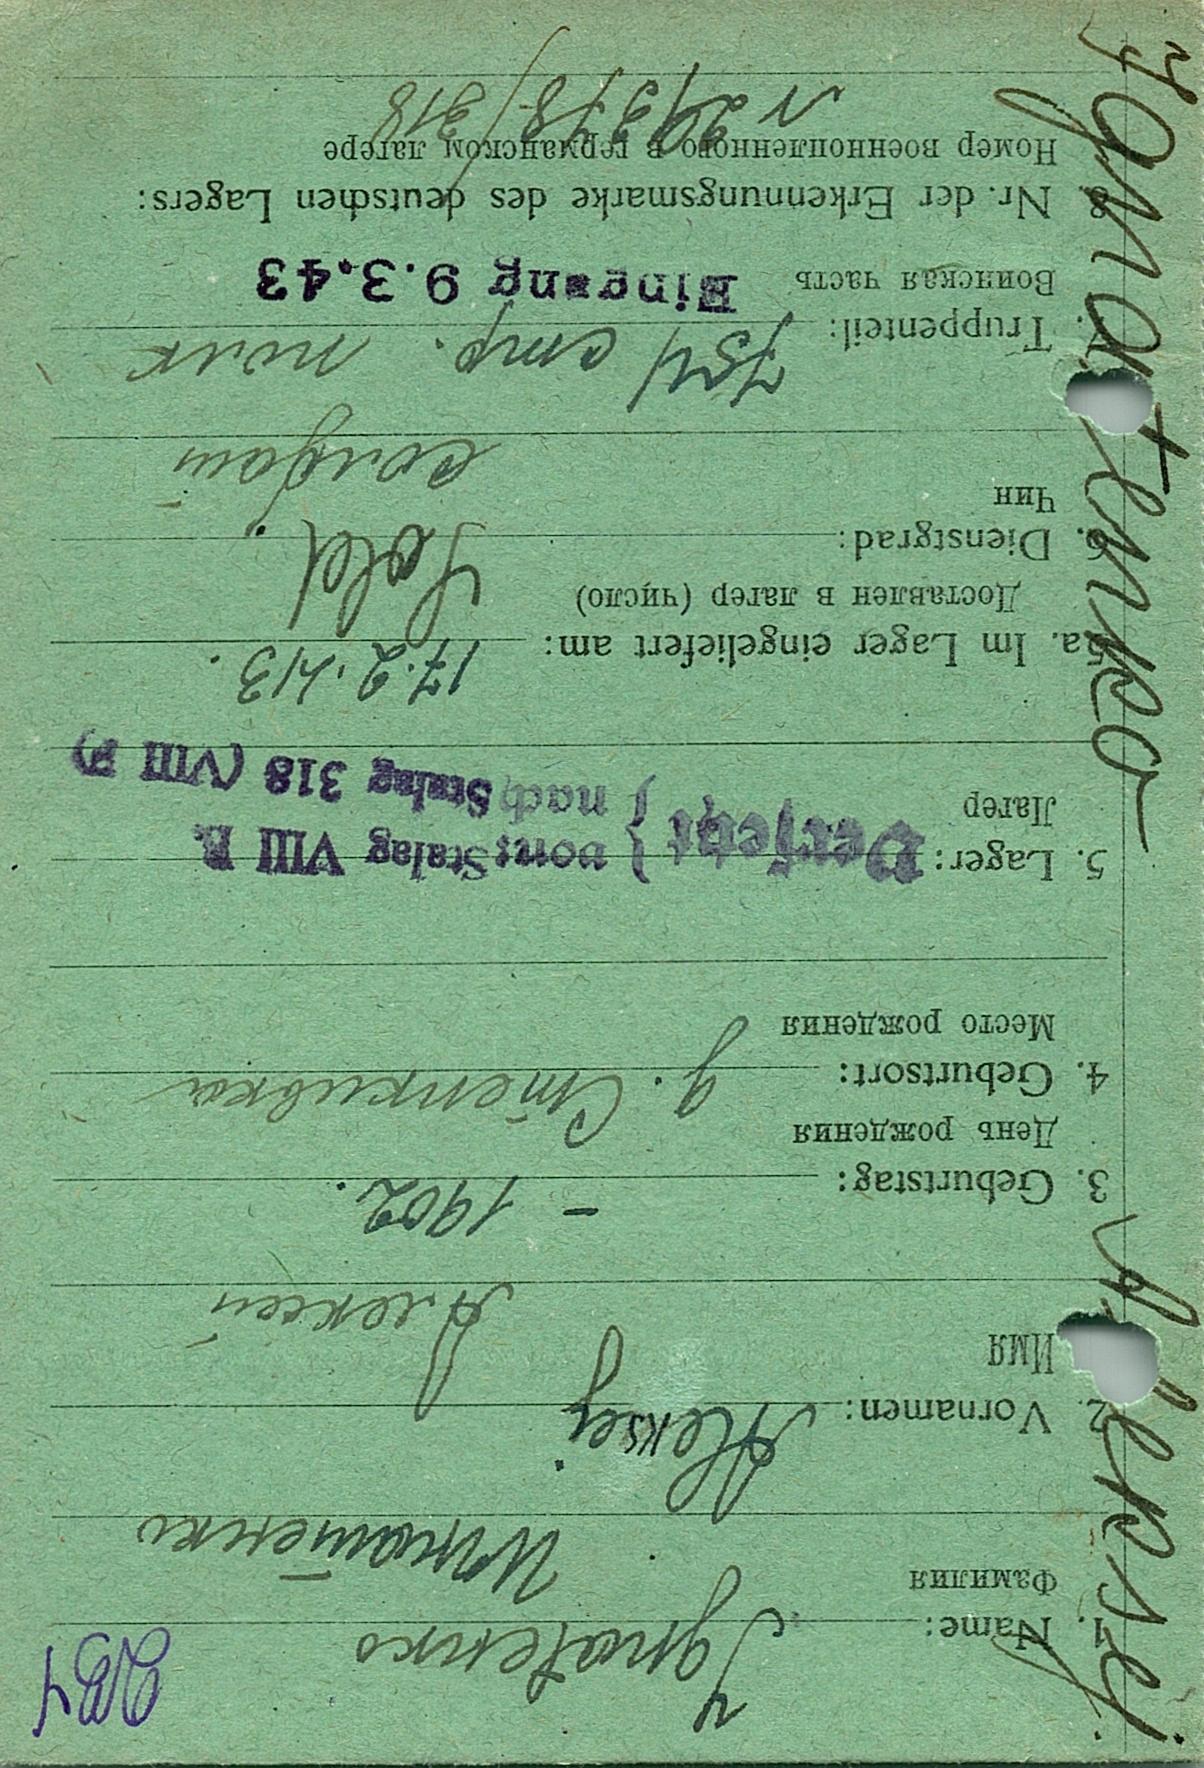 Ignatenko Aleksej
1. Name: Ignatenko
Фамилия Игнатенко
2. Vornamen: Aleksej
Имя Алексей
3. Geburtstag: – 1902.
День рождения
4. Geburtsort: д. Степкивка
Место рождения
5. Lager: Versetzt } von: Stalag VIII B.
Лагер } nach Stalag 318 (VIII F)
5a. Im Lager eingeliefert am: 17.2.43.
Доставлен в лагер (число)
6. Dienstgrad: Sold.
Чин солдат
7. Truppenteil: стр. полк
Воинская часть Eingang 9.3.43
8. Nr. der Erkennungsmarke des deutschen Lagers:
Номер военнопленного в германском лагере
N 29378/318